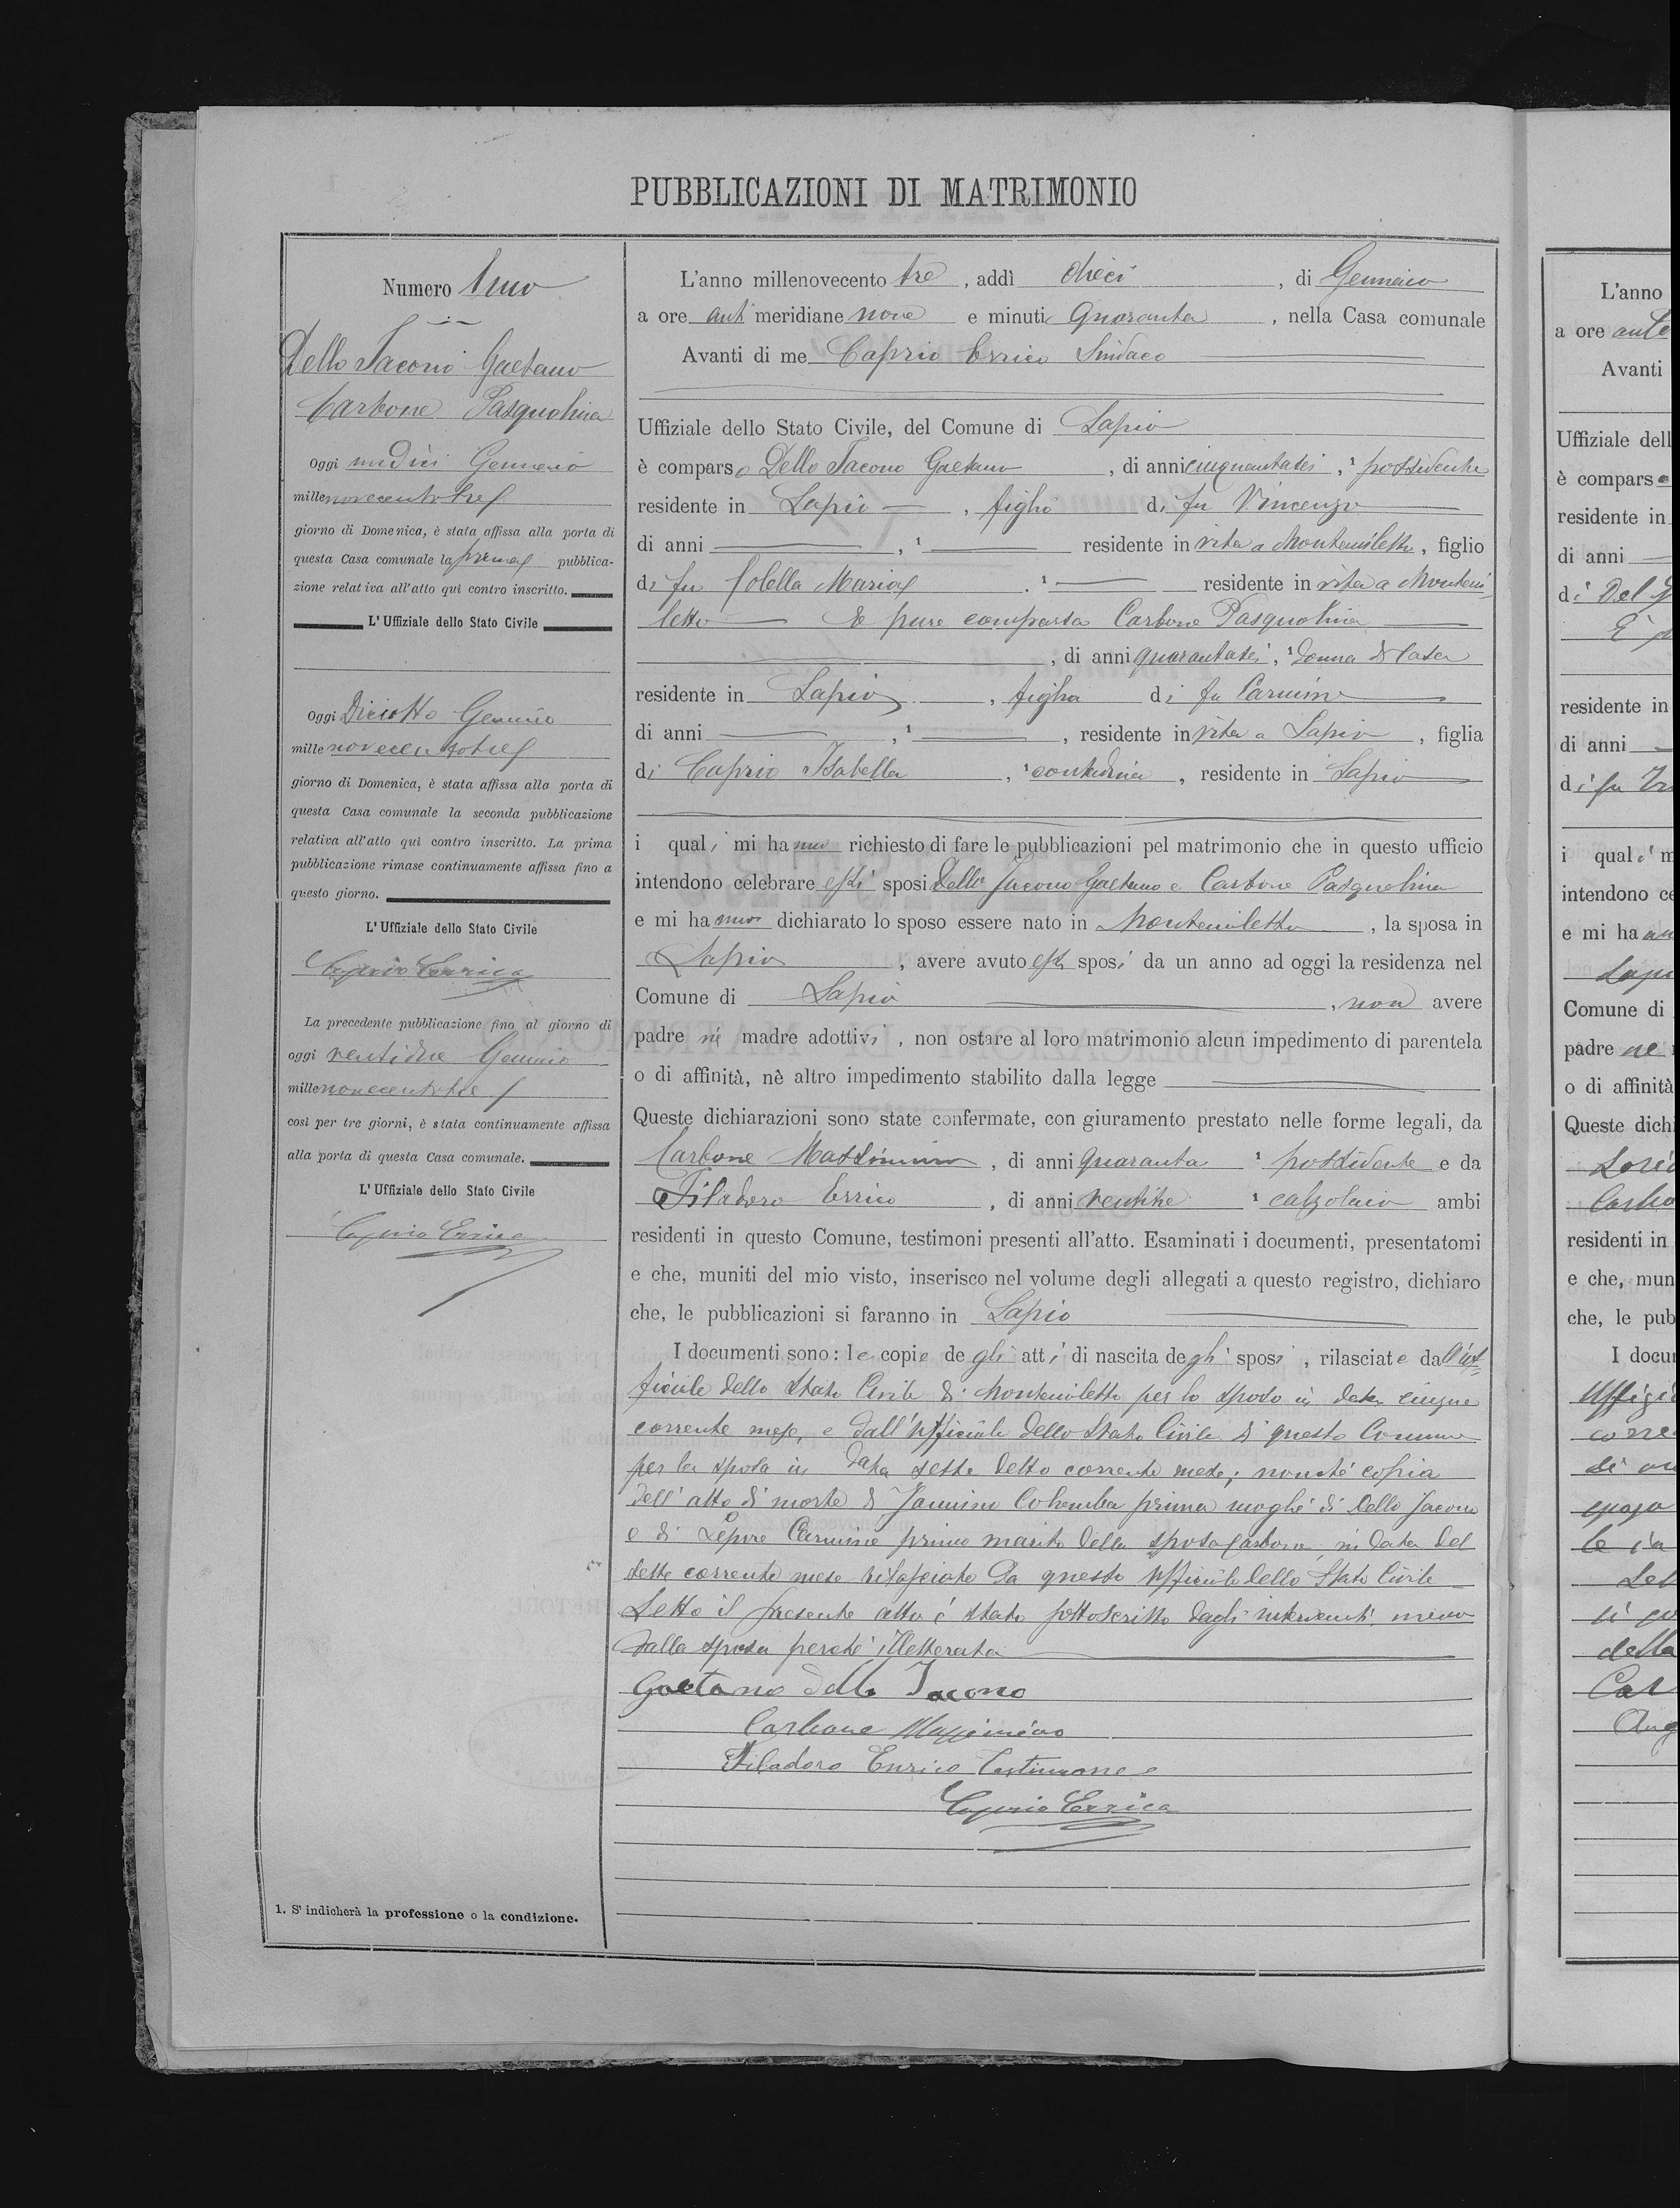 PUBBLICAZIONI DI MATRIMONIO
Numero Uno
Dello Iacono Gaetano
Carbone Pasqualina
Oggi undici Gennaio
millenovecentotre
giorno di Domenica, è stata affissa alla porta di
questa Casa comunale la prima pubblica-
zione relativa all'atto quì contro inscritto.
L'Uffiziale dello Stato Civile
Oggi Diciotto Gennaio
mille novecentotre
giorno di Domenica, è stata affissa alla porta di
questa Casa comunale la seconda pubblicazione
relativa all'atto quì contro inscritto. La prima
pubblicazione rimase continuamente affissa fino a
questo giorno.
L'Uffiziale dello Stato Civile
Caprio Errico
La precedente pubblicazione fino al giorno di
oggi ventidue Gennaio
millenovecentotre
così per tre giorni, è stata continuamente affissa
alla porta di questa Casa comunale.
L'Uffiziale dello Stato Civile
Caprio Errico
1. S'indicherà la professione o la condizione.
L'anno millenovecento tre, addì dieci, di Gennaio
a ore anti meridiane nove e minuti Quaranta, nella Casa comunale
Avanti di me Caprio Errico Sindaco
Uffiziale dello Stato Civile, del Comune di Lapio
è comparso Dello Iacono Gaetano, di anni cinquantasei, 1 possidente
residente in Lapio, figlio di fu Vincenzo
di anni , 1 residente in vita a Montemiletto, figlio
di fu Colella Maria , 1 residente in vita a Montemi
letto È pure comparsa Carbone Pasqualina
, di anni quarantasei, 1 donna di casa
residente in Lapio, figlia di fu Carmine
di anni , 1 , residente in vita a Lapio, figlia
di Caprio Isabella, 1 contadina, residente in Lapio
i quali mi hanno richiesto di fare le pubblicazioni pel matrimonio che in questo ufficio
intendono celebrare essi sposi Dello Iacono Gaetano e Carbone Pasqualina
e mi hanno dichiarato lo sposo essere nato in Montemiletto, la sposa in
Lapio, avere avuto essi sposi da un anno ad oggi la residenza nel
Comune di Lapio, non avere
padre nè madre adottivi, non ostare al loro matrimonio alcun impedimento di parentela
o di affinità, nè altro impedimento stabilito dalla legge
Queste dichiarazioni sono state confermate, con giuramento prestato nelle forme legali, da
Carbone Massimino, di anni Quaranta 1 possidente e da
Filadoro Errico, di anni ventitre 1 calzolaio ambi
residenti in questo Comune, testimoni presenti all'atto. Esaminati i documenti, presentatomi
e che, muniti del mio visto, inserisco nel volume degli allegati a questo registro, dichiaro
che, le pubblicazioni si faranno in Lapio
I documenti sono: le copie degli atti di nascita degli sposi, rilasciate dall'Uf-
ficiale dello Stato Civile di Montemiletto per lo sposo in data cinque
corrente mese, e dall'Ufficiale dello Stato Civile di questo Comune
per la sposa in data sette detto corrente mese; nonchè copia
dell'atto di morte di Iannino Colomba prima moglie di Dello Iacono
e di Lepore Carmine primo marito della sposa Carbone, in data del
sette corrente mese rilasciate da questo Ufficiale dello Stato Civile
Letto il presente atto è stato sottoscritto dagli intervenuti meno
dalla sposa perchè illetterata
Gaetano dello Iacono
Carbone Massimino
Filadoro Enrico Testimone
Caprio Errico
L'anno
a ore ante
Avanti
Uffiziale dell
è comparso
residente in
di anni
di Del
residente in
di anni
di fu
i quali m
intendono ce
e mi hann
Lapi
Comune di
padre ne
o di affinità
Queste dichi
Carbo
residenti in
e che, mun
che, le pub
I docu
Uffizi
corre
della
Car